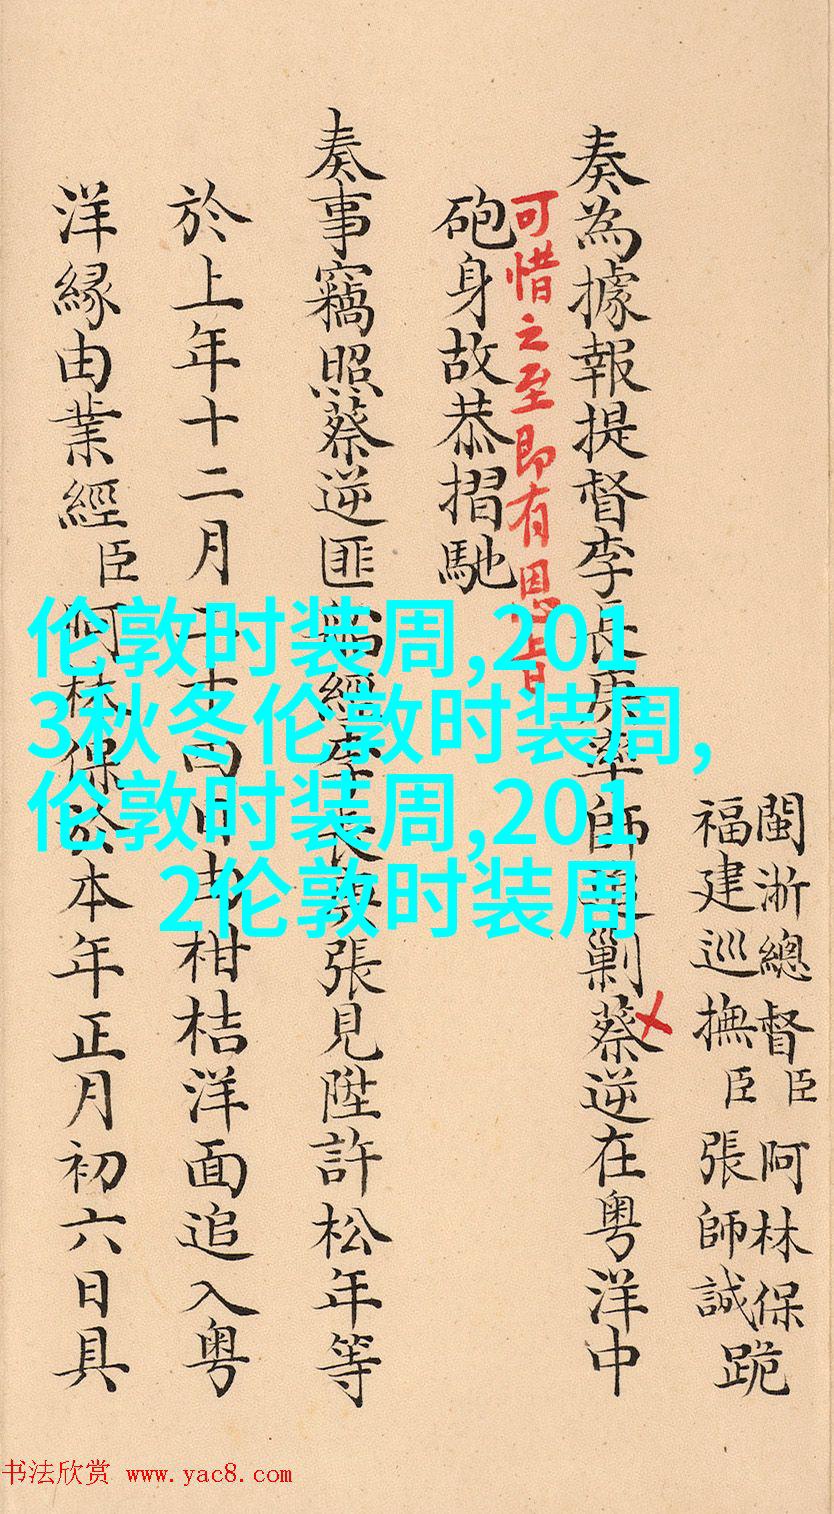 閩浙總督臣阿林保
福建巡撫臣張師誠
跪
奏為據報提督李長庚率師追剿蔡逆在粵洋中
可惜之至即有恩旨
砲身故恭摺馳
奏事竊照蔡逆匪船經李長庚張見陞許松年等
於上年十二月日由柑桔洋面追入粵
洋緣由業經臣阿林保於本年正月初六日具
伦敦时装周,201
3秋冬伦敦时装周,
伦敦时装周,201
2伦敦时装周
书法欣赏 www.yac8.com